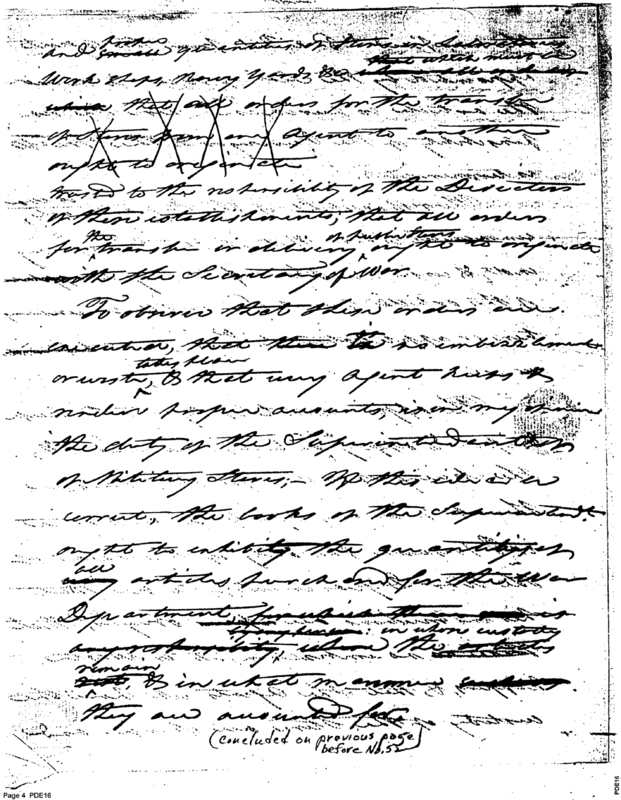 and small quantities of Stores in Laboratories
Work shops, Navy Yards &c
which that all orders for the transfer
of Stores from one Agent to another
ought to originate
trusted to the responsibility of the Directors
of these establishments; that all orders
for the transfer or delivery of public Stores ought to originate
with the Secretary of War.
To observe that these orders are
executed, that there is no embezzlement
or waste takes place, & that every Agent keeps &
renders proper accounts, is in my opinion
the duty of the Superintendent
of Military Stores;— If this idea is
correct, the books of the Superintendt.
ought to exhibit the quantity of
all any articles purchased for the War
Department, for which there is
any responsibility, where the articles : in whose custody
remain, & in what manner
they are accounted for
(concluded on previous page
before No. 52)
Page 4 PDE16
PDE16